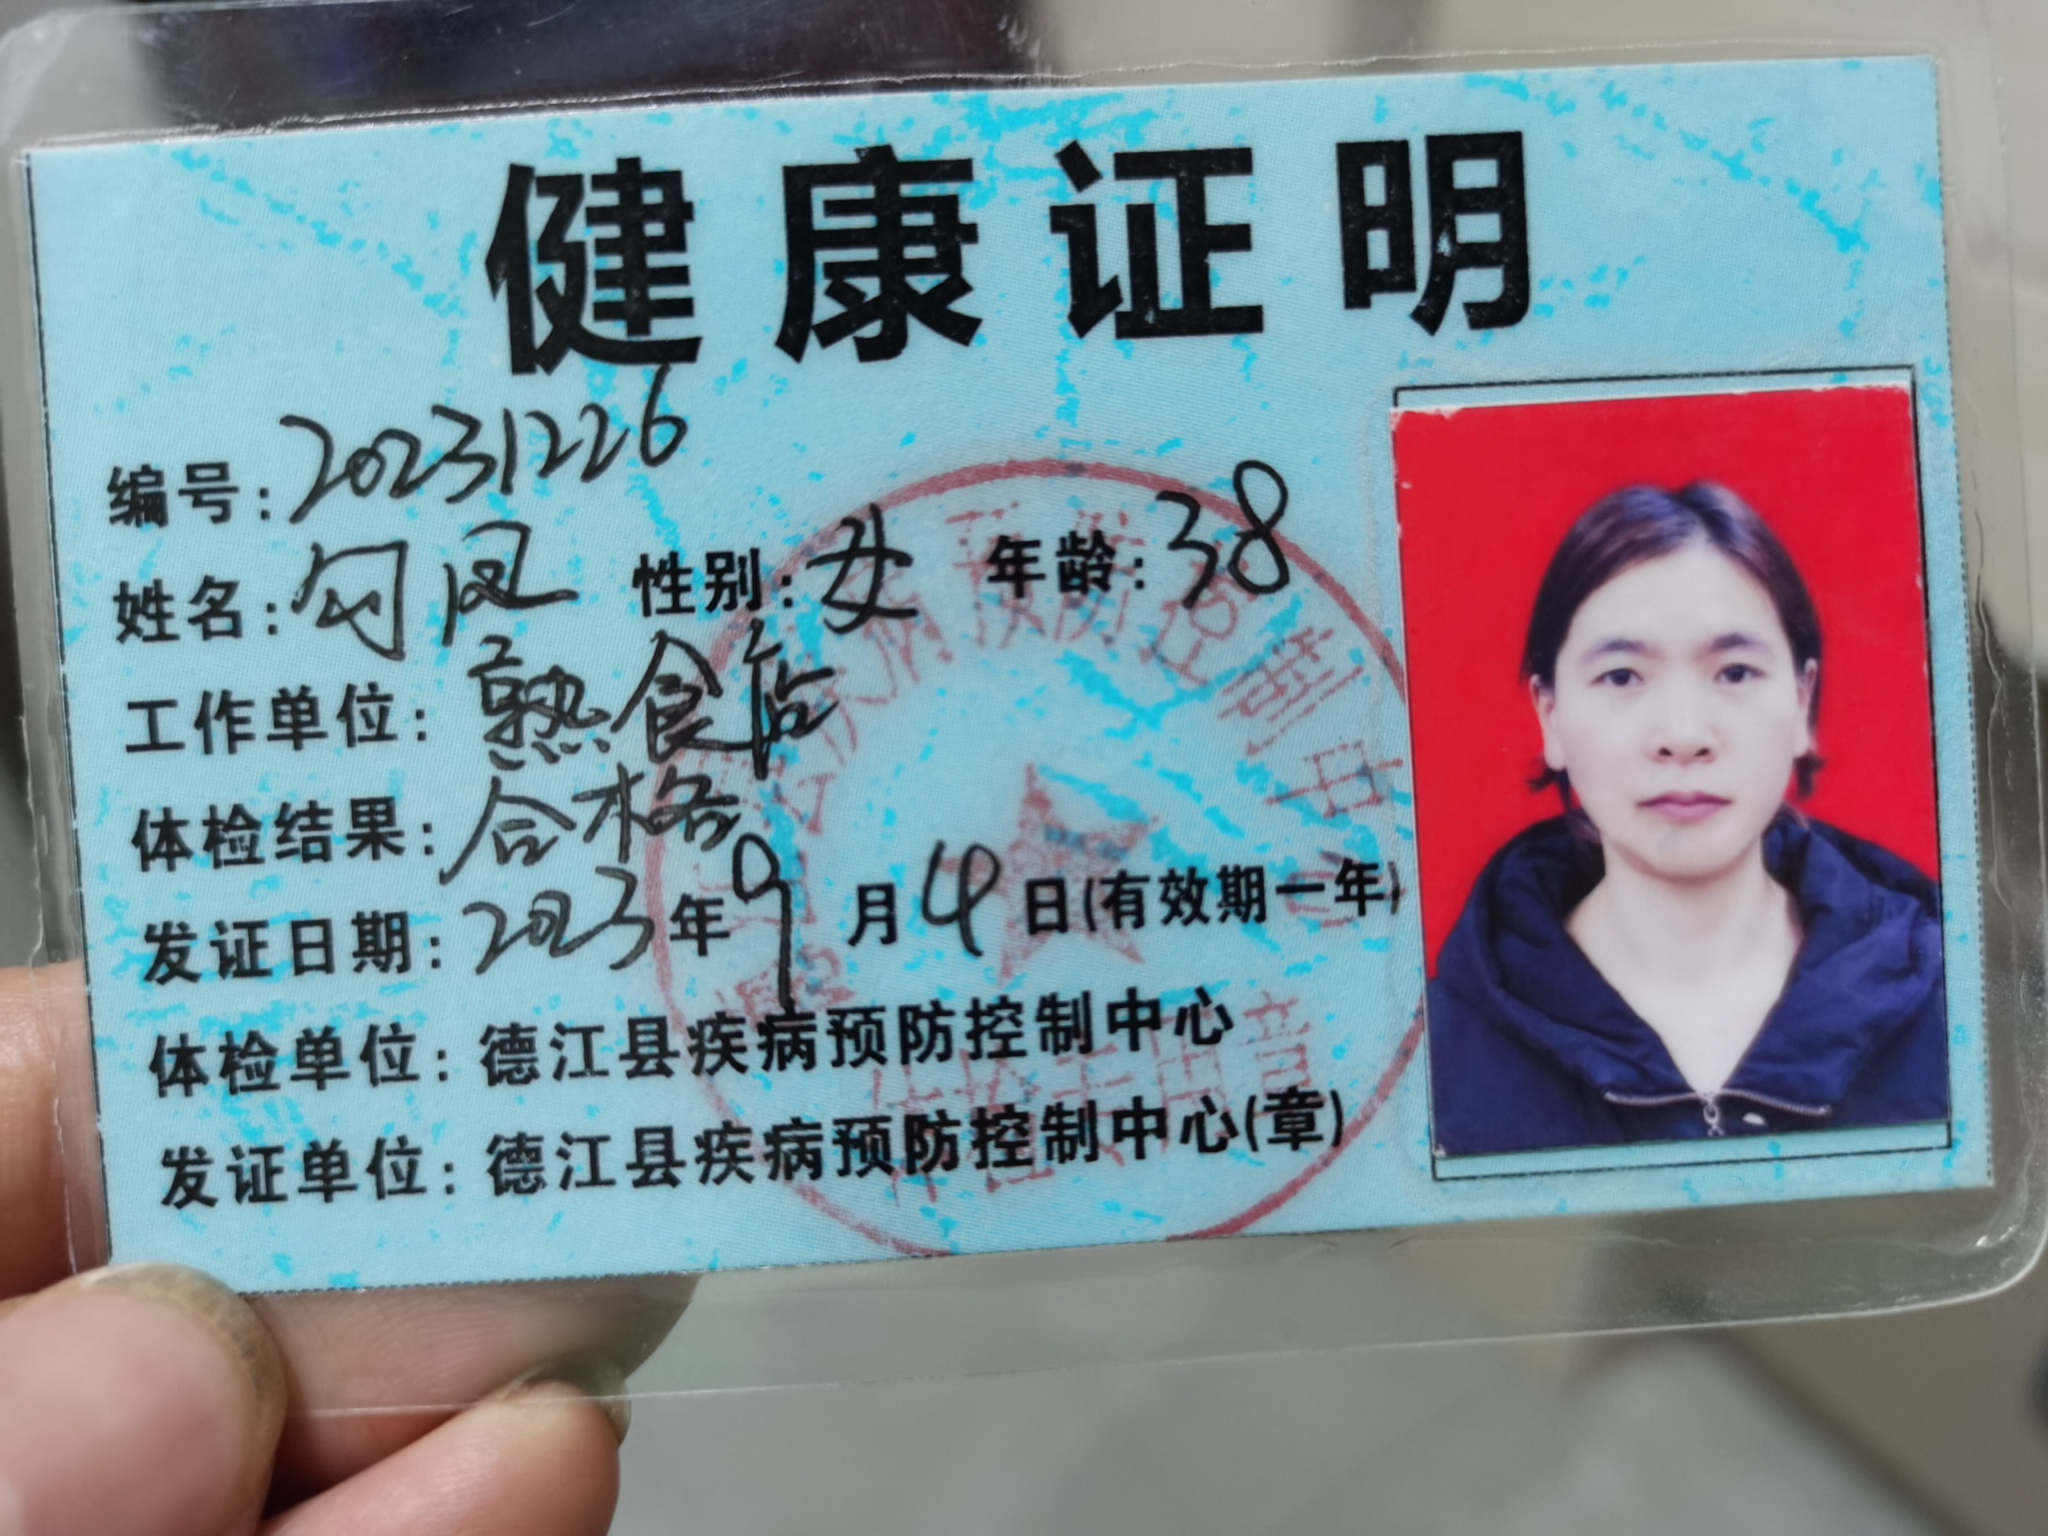 健康证明
编号:20231226
姓名:勾凤 性别:女 年龄:38
工作单位:熟食店
体检结果:合格
发证日期:2023年9月4日(有效期一年)
体检单位:德江县疾病预防控制中心
发证单位:德江县疾病预防控制中心(章)